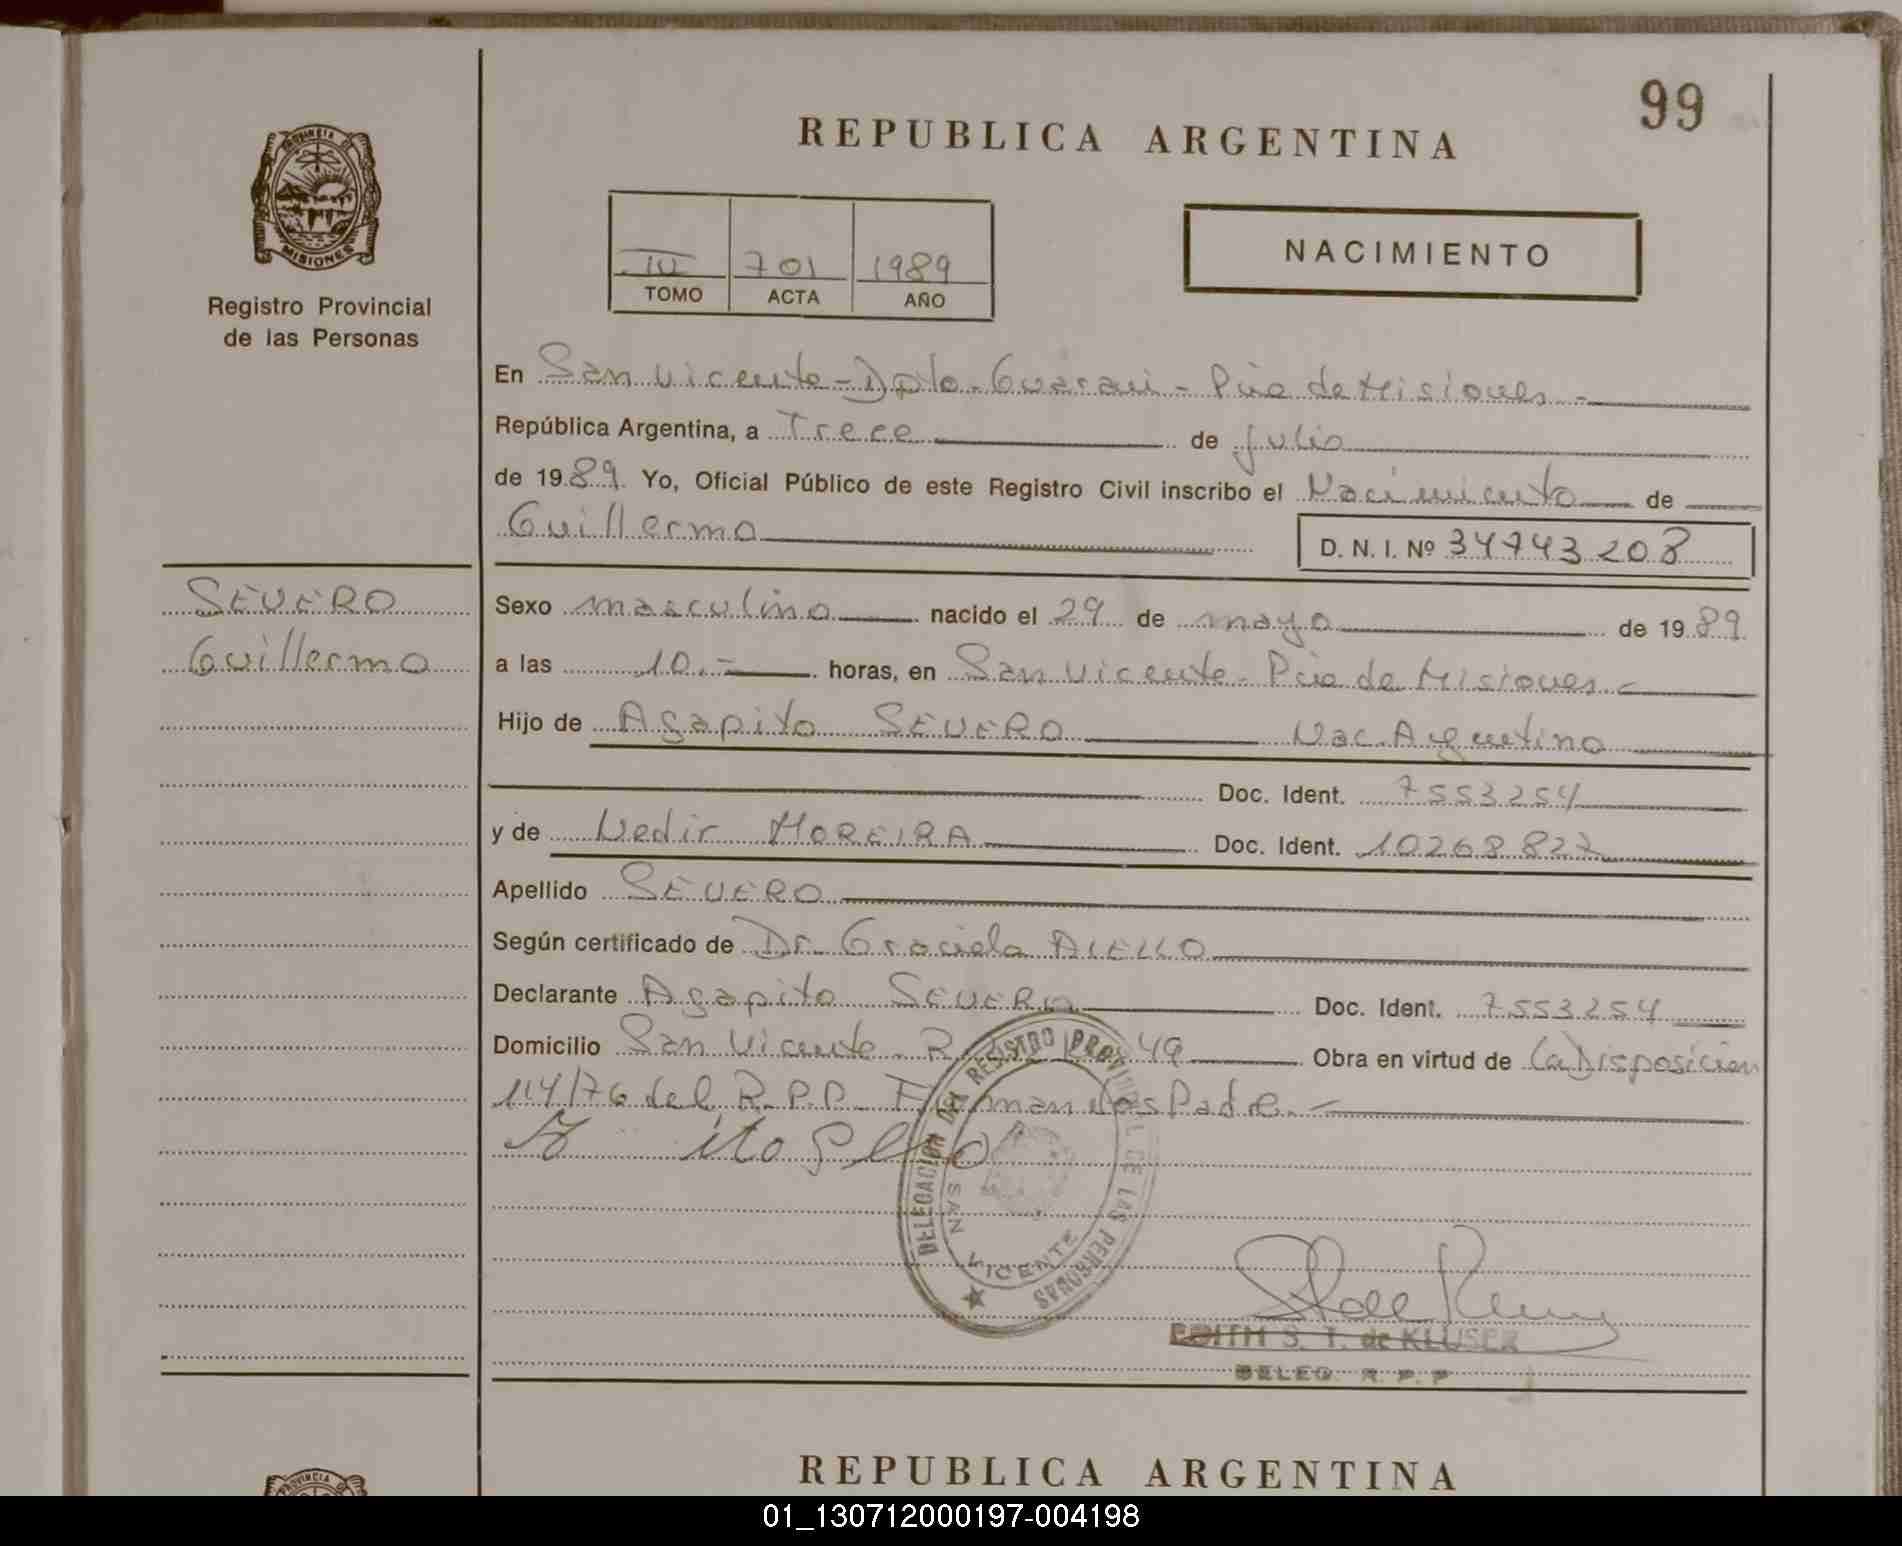 99
REPUBLICA ARGENTINA
PROVINCIA
MISIONES
Registro Provincial
de las Personas
III 701 1989
TOMO ACTA AÑO
NACIMIENTO
En San Vicente - Dpto - Guarani - Pcia de Misiones -
República Argentina, a Trece de julio
de 1989 Yo, Oficial Público de este Registro Civil inscribo el Nacimiento de
Guillermo
D. N. I. Nº 34743208
SEVERO
Guillermo
Sexo masculino nacido el 29 de mayo de 1989
a las 10.- horas, en San Vicente - Pcia de Misiones -
Hijo de Agapito SEVERO Nac. Argentino
Doc. Ident. 7553254
y de Nedir MOREIRA Doc. Ident. 10268827
Apellido SEVERO
Según certificado de Dr. Graciela AIELLO
Declarante Agapito SEVERO Doc. Ident. 7553254
Domicilio San Vicente - 49 Obra en virtud de la Disposicion
114/76 del R.P.P. Padre. -
DELEGACION DEL REGISTRO PROVINCIAL DE LAS PERSONAS
SAN VICENTE
EDITH S. T. de KLUSER
DELEG. R. P. P
REPUBLICA ARGENTINA
PROVINCIA
01_130712000197-004198